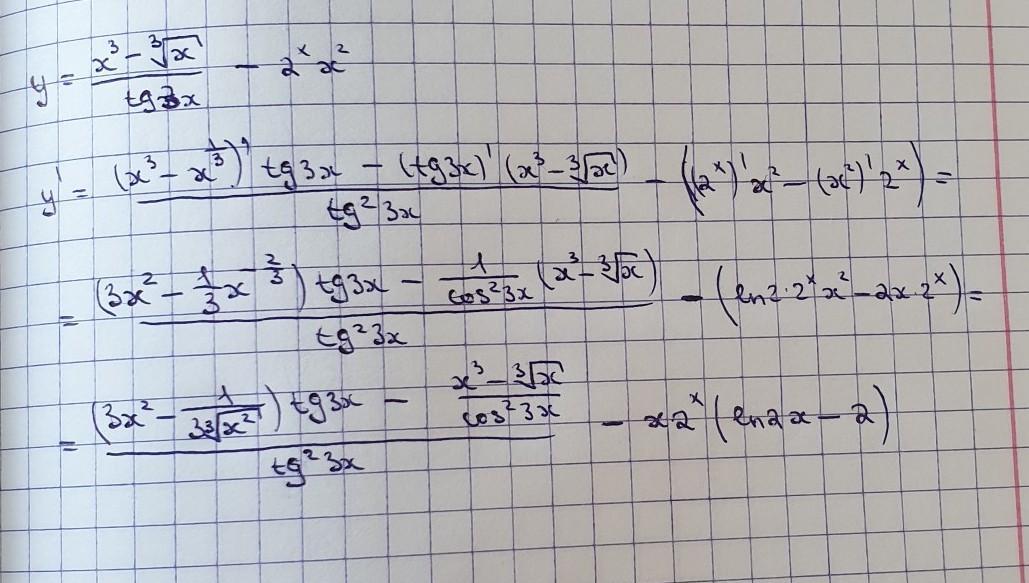 y = (x³ - ∛x) / (tg3x) - 2ˣx²
y' = ((x³ - x^(1/3))' tg3x - (tg3x)' (x³ - ∛x)) / (tg²3x) - ((2ˣ)'x² - (x²)'2ˣ) =
= ((3x² - 1/3 x^(-2/3)) tg3x - 1/(cos²3x) (x³ - ∛x)) / (tg²3x) - (ln2·2ˣx² - 2x·2ˣ) =
= ((3x² - 1/(3∛x²)) tg3x - (x³ - ∛x)/(cos²3x)) / (tg²3x) - x2ˣ(ln2x - 2)